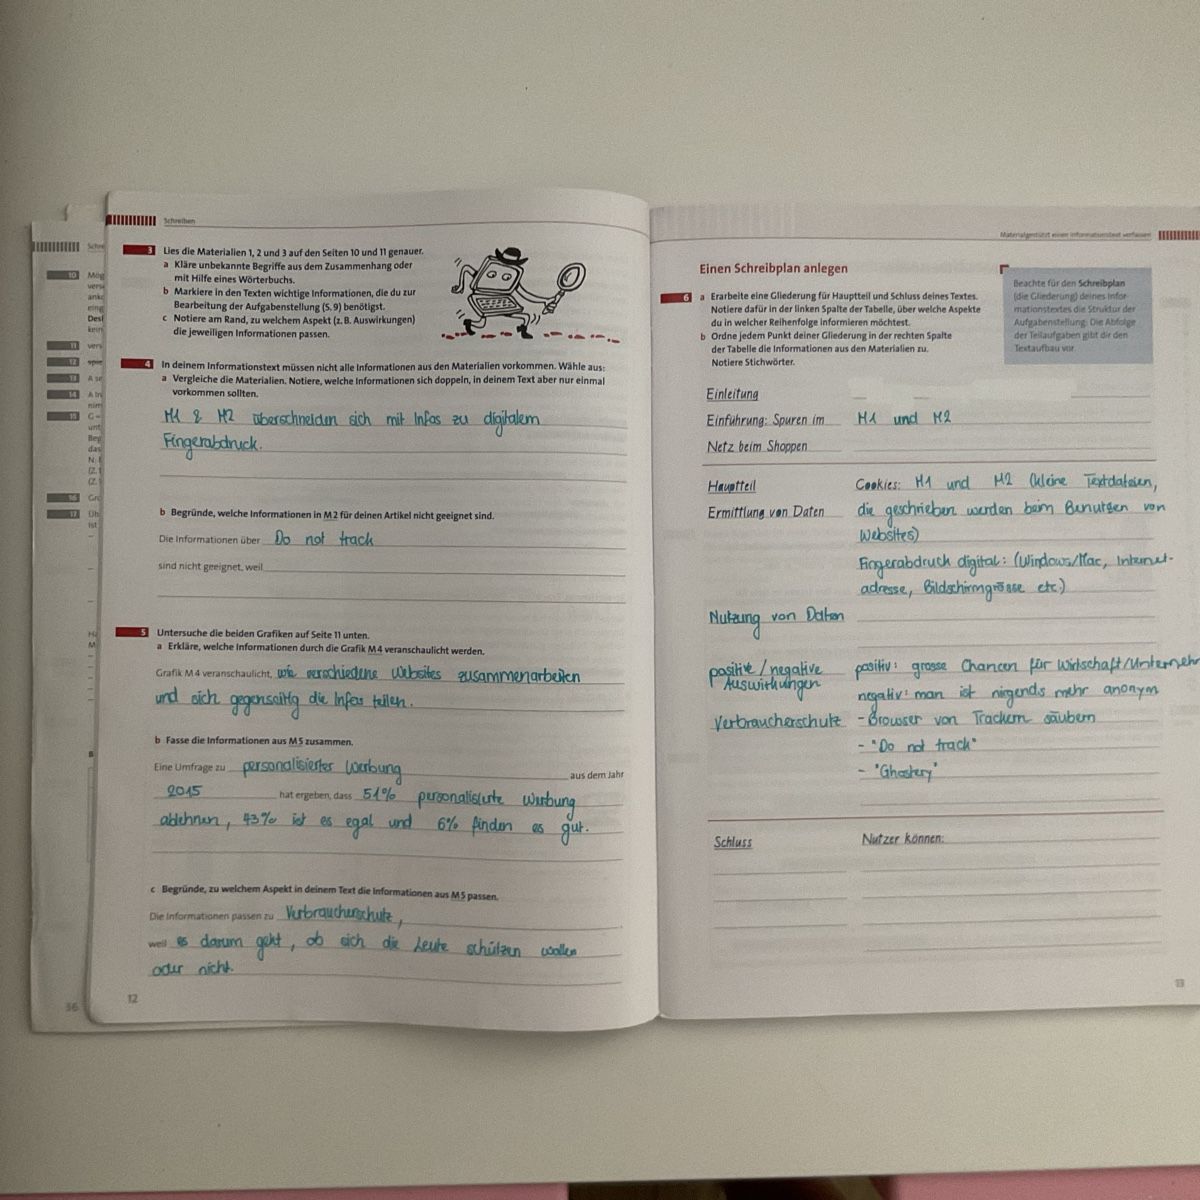 Schreiben
3 Lies die Materialien 1, 2 und 3 auf den Seiten 10 und 11 genauer.
a Kläre unbekannte Begriffe aus dem Zusammenhang oder
mit Hilfe eines Wörterbuchs.
b Markiere in den Texten wichtige Informationen, die du zur
Bearbeitung der Aufgabenstellung (S. 9) benötigst.
c Notiere am Rand, zu welchem Aspekt (z. B. Auswirkungen)
die jeweiligen Informationen passen.
4 In deinem Informationstext müssen nicht alle Informationen aus den Materialien vorkommen. Wähle aus:
a Vergleiche die Materialien. Notiere, welche Informationen sich doppeln, in deinem Text aber nur einmal
vorkommen sollten.
M1 & M2 überschneiden sich mit Infos zu digitalem
Fingerabdruck.
b Begründe, welche Informationen in M2 für deinen Artikel nicht geeignet sind.
Die Informationen über Do not track
sind nicht geeignet, weil
5 Untersuche die beiden Grafiken auf Seite 11 unten.
a Erkläre, welche Informationen durch die Grafik M4 veranschaulicht werden.
Grafik M4 veranschaulicht, wie verschiedene Websites zusammenarbeiten
und sich gegenseitig die Infos teilen.
b Fasse die Informationen aus M5 zusammen.
Eine Umfrage zu personalisierter Werbung aus dem Jahr
2015 hat ergeben, dass 51% personalisierte Werbung
ablehnen, 43% ist es egal und 6% finden es gut.
c Begründe, zu welchem Aspekt in deinem Text die Informationen aus M5 passen.
Die Informationen passen zu Verbraucherschutz,
weil es darum geht, ob sich die Leute schützen wollen
oder nicht.
12
Materialgestützt einen Informationstext verfassen
Einen Schreibplan anlegen
6 a Erarbeite eine Gliederung für Hauptteil und Schluss deines Textes.
Notiere dafür in der linken Spalte der Tabelle, über welche Aspekte
du in welcher Reihenfolge informieren möchtest.
b Ordne jedem Punkt deiner Gliederung in der rechten Spalte
der Tabelle die Informationen aus den Materialien zu.
Notiere Stichwörter.
Beachte für den Schreibplan
(die Gliederung) deines Infor-
mationstextes die Struktur der
Aufgabenstellung: Die Abfolge
der Teilaufgaben gibt dir den
Textaufbau vor.
Einleitung
Einführung: Spuren im M1 und M2
Netz beim Shoppen
Hauptteil Cookies: M1 und M2 (kleine Textdateien,
Ermittlung von Daten die geschrieben werden beim Benutzen von
Websites)
Fingerabdruck digital: (Windows/Mac, Internet-
adresse, Bildschirmgrösse etc.)
Nutzung von Daten
positive / negative positiv: grosse Chancen für Wirtschaft/Unternehm
Auswirkungen negativ: man ist nirgends mehr anonym
Verbraucherschutz - Browser von Trackern säubern
- "Do not track"
- "Ghostery"
Schluss Nutzer können:
13
36
10
11
12
13
14
15
16
17